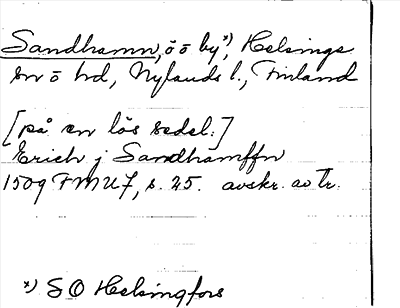 Sandhamn, ö ö by*), Helsinge
sn o hd, Nylands l., Finland
[på en lös sedel:]
Erich j Sandhamffn
1509 FMU 7, s. 25. avskr. av Tr.
*) SO Helsingfors